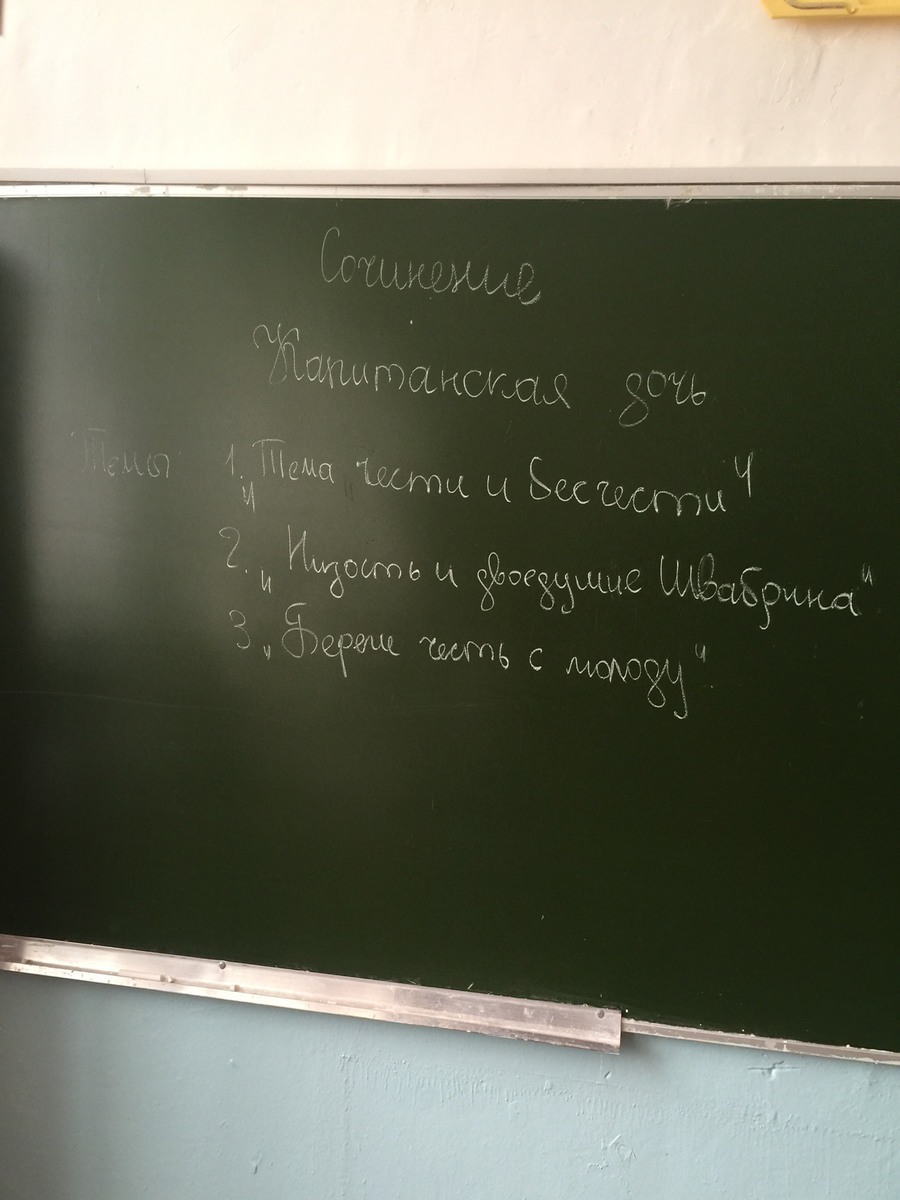 Сочинение
Капитанская дочь
Темы 1. "Тема чести и бесчести"
2. "Низость и двоедушие Швабрина"
3. "Береги честь с молоду"